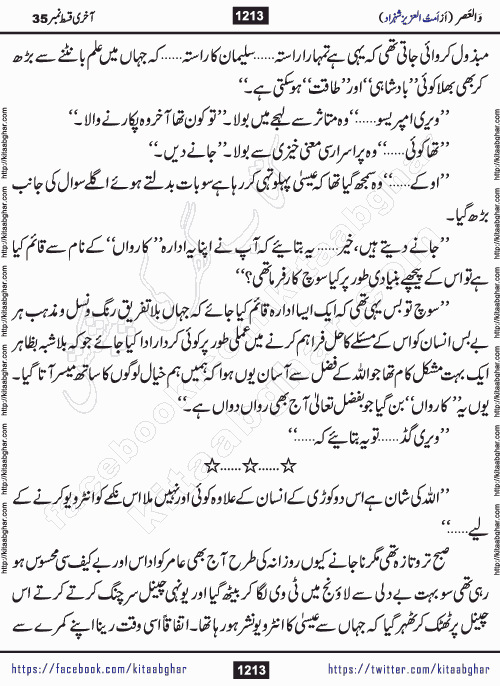 وَالعَصر (اَز اَمتُ العزیز شہزاد)
1213
آخری قسط نمبر 35
مبذول کروائی جاتی تھی کہ یہی ہے تمہارا راستہ......سلیمان کا راستہ......کہ جہاں میں علم بانٹنے سے بڑھ
کر بھی بھلا کوئی ’’بادشاہی‘‘ اور ’’طاقت‘‘ ہوسکتی ہے۔‘‘
’’ویری امپریسو......‘‘وہ متاثر سے لہجے میں بولا۔’’تو کون تھا آخر وہ پکارنے والا۔‘‘
’’تھا کوئی......‘‘وہ پراسرار سی معنی خیزی سے بولا۔’’جانے دیں۔‘‘
’’اوکے......‘‘وہ سمجھ گیا تھا کہ عیسیٰ پہلو تہی کر رہا ہے سو بات بدلتے ہوئے اگلے سوال کی جانب
بڑھ گیا۔
’’جانے دیتے ہیں، خیر......یہ بتائیے کہ آپ نے اپنا یہ ادارہ ’’کارواں‘‘ کے نام سے قائم کیا
ہے تو اس کے پیچھے بنیادی طور پر کیا سوچ کارفرما تھی؟‘‘
’’سوچ تو بس یہی تھی کہ ایک ایسا ادارہ قائم کیا جائے کہ جہاں بلا تفریق رنگ و نسل و مذہب ہر
بے بس انسان کو اس کے مسئلے کا حل فراہم کرنے میں عملی طور پر کوئی کردار ادا کیا جائے جو کہ بلاشبہ بظاہر
ایک بہت مشکل کام تھا جو اللہ کے فضل سے آسان یوں ہوا کہ ہمیں ہم خیال لوگوں کا ساتھ میسر آتا گیا۔
یوں یہ ’’کارواں‘‘ بن گیا جو بفضل تعالیٰ آج بھی رواں دواں ہے۔‘‘
’’ویری گڈ......تو یہ بتائیے کہ......‘‘
☆......☆......☆
’’اللہ کی شان ہے اس دو کوڑی کے انسان کے علاوہ کوئی اور نہیں ملا اس نکمے کو انٹرویو کرنے کے
لیے......‘‘
صبح تر و تازہ تھی مگر نا جانے کیوں روزانہ کی طرح آج بھی عامر کو اداس اور بے کیف سی محسوس ہو
رہی تھی سو بہت بے دلی سے لاؤنج میں ٹی وی لگا کر بیٹھ گیا اور یونہی چینل سرچنگ کرتے کرتے اس
چینل پر ٹھٹک کر ٹھہر گیا کہ جہاں سے عیسیٰ کا انٹرویو نشر ہو رہا تھا۔ اتفاقاً اسی وقت رینا اپنے کمرے سے
https://facebook.com/kitaabghar
1213
https://twitter.com/kitaabghar
http://kitaabghar.com
facebook.com/kitaabghar